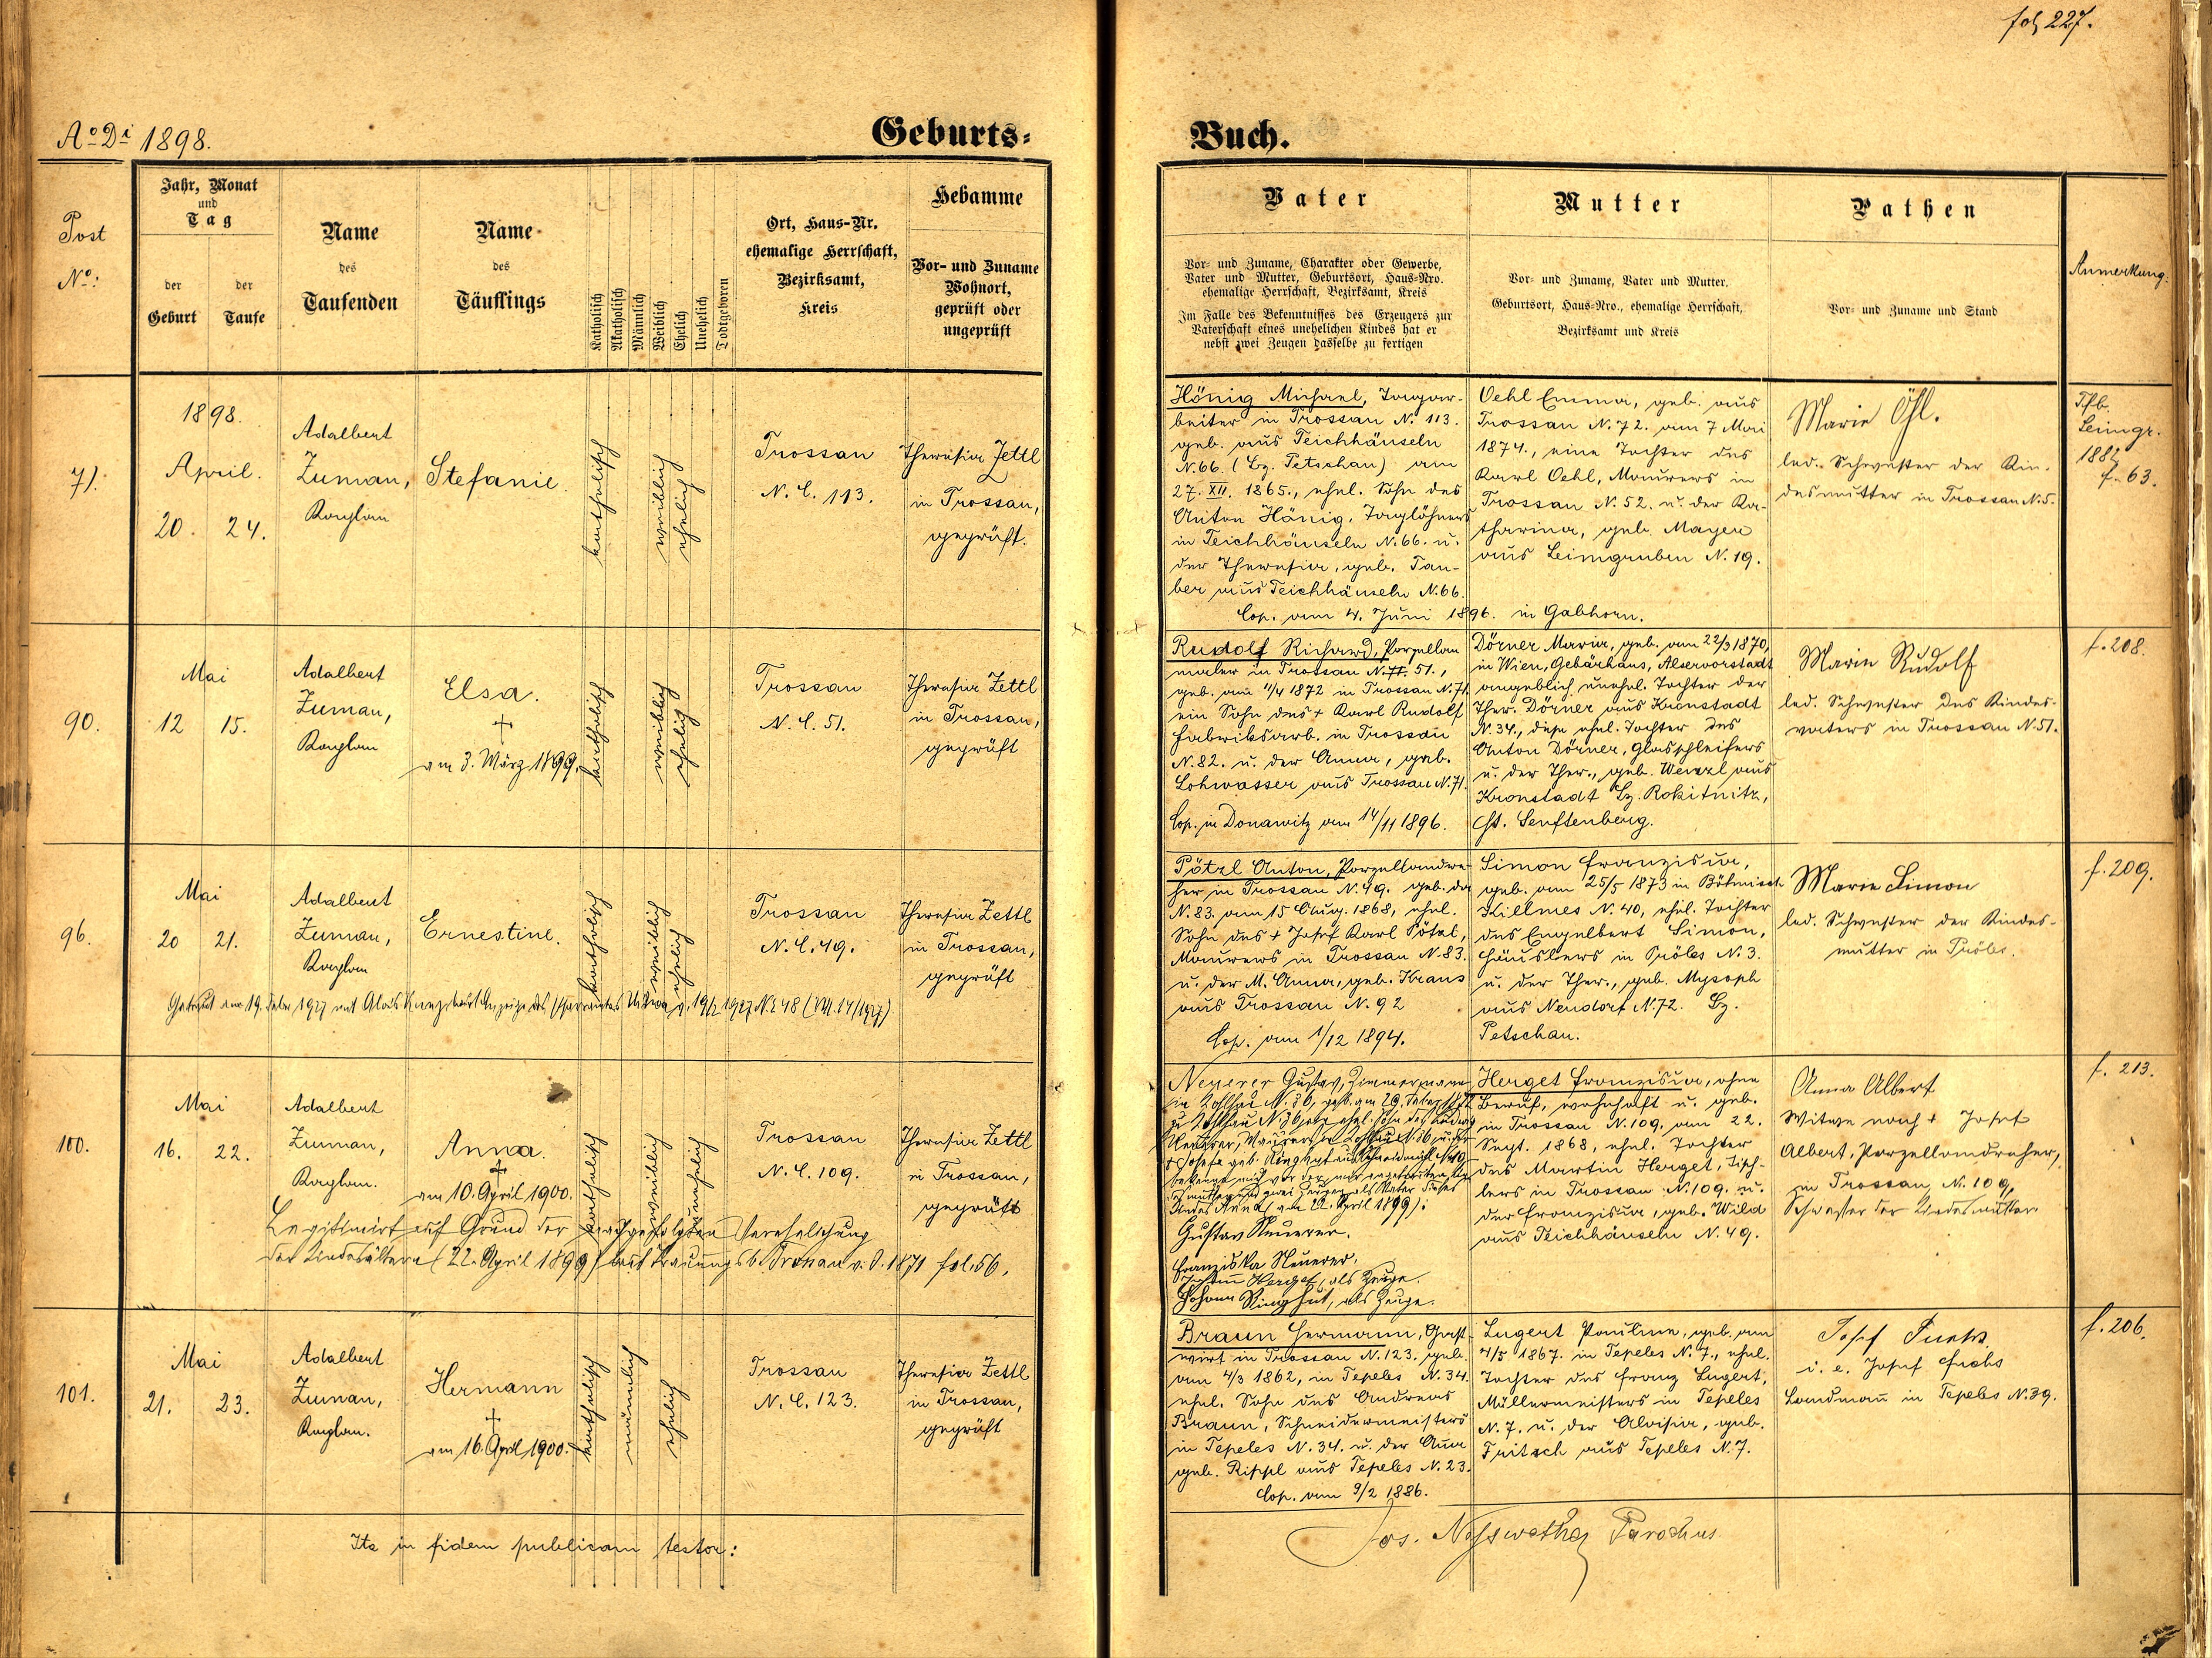 fol 227.
Aº Di 1898.
Geburts-Buch.
Post
Nº:
Jahr, Monat
und
Tag
der
Geburt
der
Taufe
Name
des
Taufenden
Name
des
Täuflings
Katholisch
Akatholisch
Männlich
Weiblich
Ehelich
Unehelich
Todtgeboren
Ort, Haus-Nr.
ehemalige Herrschaft,
Bezirksamt,
Kreis
Hebamme
Vor- und Zuname
Wohnort,
geprüft oder
ungeprüft
Vater
Vor- und Zuname, Charakter oder Gewerbe,
Vater und Mutter, Geburtsort, Haus-Nro.
ehemalige Herrschaft, Bezirksamt, Kreis
Im Falle des Bekenntnisses des Erzeugers zur
Vaterschaft eines unehelichen Kindes hat er
nebst zwei Zeugen dasselbe zu fertigen
Mutter
Vor- und Zuname, Vater und Mutter,
Geburtsort, Haus-Nro., ehemalige Herrschaft,
Bezirksamt und Kreis
Pathen
Vor- und Zuname und Stand
Anmerkung.
71.
1898.
April.
20. 24.
Adalbert
Zuman,
Kaplan
Stefanie.
katholisch
weiblich
ehelich
Trossau
N. C. 113.
Theresia Zettl
in Trossau,
geprüft.
Hönig Michael, Tagar-
beiter in Trossau N. 113.
geb. aus Teichhäuseln
N. 66. (Bz. Petschau) am
27. XII. 1865., ehel. Sohn des
Anton Hönig, Taglöhners
in Teichhäuseln N. 66. u.
der Theresia, geb. Tau-
ber aus Teichhäuseln N. 66.
Cop. am 4. Juni 1896. in Gabhorn.
Oehl Emma, geb. aus
Trossau N. 72. am 7 Mai
1874., eine Tochter des
Karl Oehl, Maurers in
Trossau N. 52. u. der Ka-
tharina, geb. Mayer
aus Leimgruben N. 19.
Marie Öhl.
led. Schwester der Kin-
desmutter in Trossau N. 5.
Tfb.
Leimgr.
f. 63.
90.
Mai
12 15.
Adalbert
Zuman,
Kaplan
Elsa.
†
am 3. März 1899.
katholisch
weiblich
ehelich
Trossau
N. C. 51.
Theresia Zettl
in Trossau,
geprüft
Rudolf Richard, Porzellan
maler in Trossau N. 51.,
geb. am 11/4 1872 in Trossau N. 71.
ein Sohn des † Karl Rudolf
Fabriksarb. in Trossau
N. 82. u. der Anna, geb.
Lohwasser aus Trossau N. 71.
Cop. in Donawitz am 14/11 1896.
Dörner Maria, geb. am 22/3 1870,
in Wien, Gebärhaus, Alservorstadt
angeblich unehel. Tochter der
Ther. Dörner aus Kronstadt
N. 34., diese ehel. Tochter des
Anton Dörner, Glasschleifers
u. der Ther., geb. Wenzl aus
Kronstadt Bz. Rokitnitz,
Senftenberg.
Marie Rudolf
led. Schwester des Kindes-
vaters in Trossau N. 51.
f. 208.
96.
Mai
20 21.
Adalbert
Zuman,
Kaplan
Ernestine.
katholisch
weiblich
ehelich
Trossau
N. C. 49.
Theresia Zettl
in Trossau,
geprüft
Getraut am 19. Feber 1927 mit Alois laut Anzeige des Pfarramtes v. 19/2 1927 N. 48
Pötzl Anton, Porzellandre-
her in Trossau N. 49. geb. da
N. 83. am 15 Aug. 1868, ehel.
Sohn des † Josef Karl Pötzl,
Maurers in Trossau N. 83.
u. der M. Anna, geb. Kraus
aus Trossau N. 92
Cop. am 1/12 1894.
Simon Franziska,
geb. am 25/5 1873 in Böhmisch
Killmes N. 40, ehel. Tochter
des Engelbert Simon,
Häuslers in Pröles N. 3.
u. der Ther., geb. Mysoph
aus Neudorf N. 72. Bz.
Petschau.
Marie Simon
led. Schwester der Kindes-
mutter in Pröles.
f. 209.
100.
Mai
16. 22.
Adalbert
Zuman,
Kaplan.
Anna.
†
am 10. April 1900.
katholisch
weiblich
unehelich
Trossau
N. C. 109.
Theresia Zettl
in Trossau,
geprüft
Legitimirt auf Grund der nachgefolgten Verehelichung
der Kindesältern (22. April 1899) laut Trauungsb. Trossau v. J. 1871 fol. 56.
Neuerer Gustav, Zimmermann
in Kohlhau N. 36, geb. am
bekennt sich vor
und zwei Zeugen als Vater dieses
Kindes Anna (am 22. April 1899):
Gustav Neuerer.
Franziska Neuerer.
Johann Herget, als Zeuge.
Johann Ringhut, als Zeuge.
Herget Franziska, ohne
Beruf, wohnhaft u. geb.
in Trossau N. 109, am 22.
Sept. 1868, ehel. Tochter
des Martin Herget, Tisch-
lers in Trossau N. 109. u.
der Franziska, geb. Wild
aus Teichhäuseln N. 49.
Anna Albert
Witwe nach † Josef
Albert, Porzellandreher,
in Trossau, N. 109,
Schwester der Kindesmutter
f. 213.
101.
Mai
21. 23.
Adalbert
Zuman,
Kaplan.
Hermann
†
am 16. April 1900.
katholisch
männlich
ehelich
Trossau
N. C. 123.
Theresia Zettl
in Trossau,
geprüft
Braun Hermann, Gast-
wirt in Trossau N. 123. geb.
am 4/3 1862, in Tepeles N. 34.
ehel. Sohn des Andreas
Braun, Schneidermeisters
in Tepeles N. 34. u. der Anna
geb. Rippl aus Tepeles N. 23.
Cop. am 9/2 1886.
Lugert Pauline, geb. am
4/5 1867. in Tepeles N. 7., ehel.
Tochter des Franz Lugert,
Müllermeisters in Tepeles
N. 7. u. der Aloisia, geb.
Fritsch aus Tepeles N. 7.
Josef Fuchs
i. e. Josef Fuchs
Landmann in Tepeles N. 39.
f. 206.
Ita in fidem publicam testor:
Jos. Parochus.